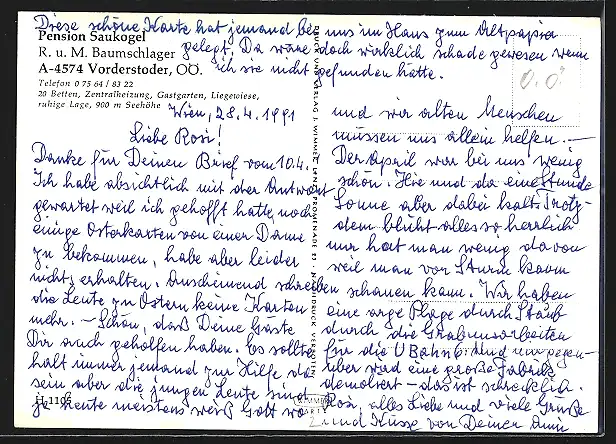 Diese schöne Karte hat jemand bei uns im Haus zum Altpapier
gelegt. Da wäre doch wirklich schade gewesen wenn
ich sie nicht gefunden hätte.
Pension Saukogel
R. u. M. Baumschlager
A-4574 Vorderstoder, OÖ.
Telefon 0 75 64 / 83 22
20 Betten, Zentralheizung, Gastgarten, Liegewiese,
ruhige Lage, 900 m Seehöhe
Wien, 28.4.1991
Liebe Rosi!
Danke für Deinen Brief vom 10.4.
Ich habe absichtlich mit der Antwort
gewartet weil ich gehofft hatte noch
einige Osterkarten von einer Dame
zu bekommen, habe aber leider
nichts erhalten. Anscheinend schreiben
die Leute zu Ostern keine Karten
mehr. – Schön, daß Deine Gäste
Dir auch geholfen haben. Es sollte
halt immer jemand zur Hilfe da
sein aber die jungen Leute sind
ja heute meistens weiß Gott wo
H 1105
und wir alten Menschen
müssen uns allein helfen. –
Der April war bei uns wenig
schön. Hie und da eine Stunde
Sonne aber dabei kalt. Trotz-
dem blüht alles so herrlich
nur hat man wenig davon
weil man vor Sturm kaum
schauen kann. Wir haben
eine arge Plage durch Staub
durch die Grabungsarbeiten
für die U Bahn 6. Und gegen-
über wird eine große Fabrik
demoliert – das ist schrecklich.
Rosi, alles Liebe und viele Grüße
und Küsse von Deiner